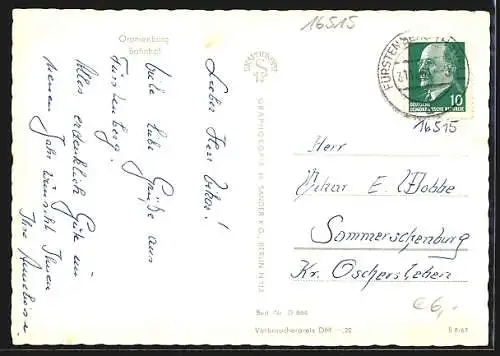 Oranienburg
Bahnhof
16515
Lieber Herr
viele liebe Grüße aus
Fürstenberg.
Alles erdenklich Gute im
neuen Jahr wünscht Ihnen
Ihre
GRAPHOKOPIE H. SANDER K.G., BERLIN N 113
FÜRSTENBERG
DEUTSCHE
DEMOKRATISCHE REPUBLIK
10
16515
Herr
E.
Sommerschenburg
Kr. Oschersleben
€6,-
Best. Nr. D 866
Verbraucherpreis DM -,20